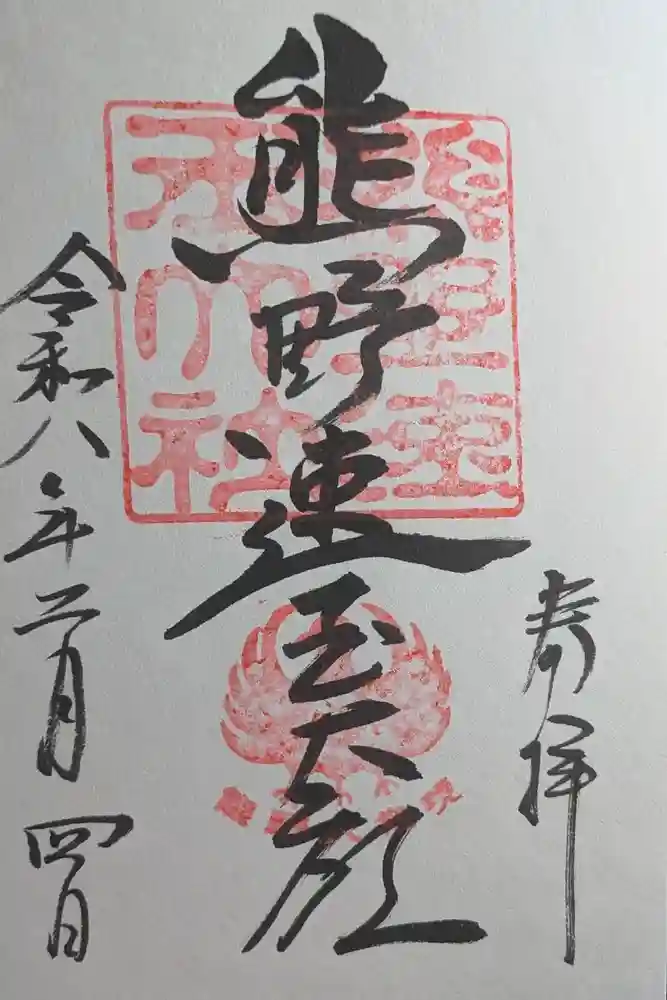 奉拝
熊野速玉大
令和八年二月四日
熊野速玉大社